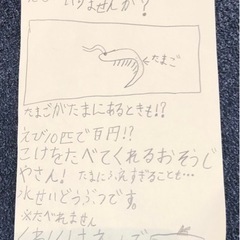 いりませんか?
たまご
たまごがたまにあるときも!?
えび10匹で百円!?
こけをたべてくれるおそうじ
やさん! たまにふえすぎることも…
水せいどうぶつです。
※たべれません